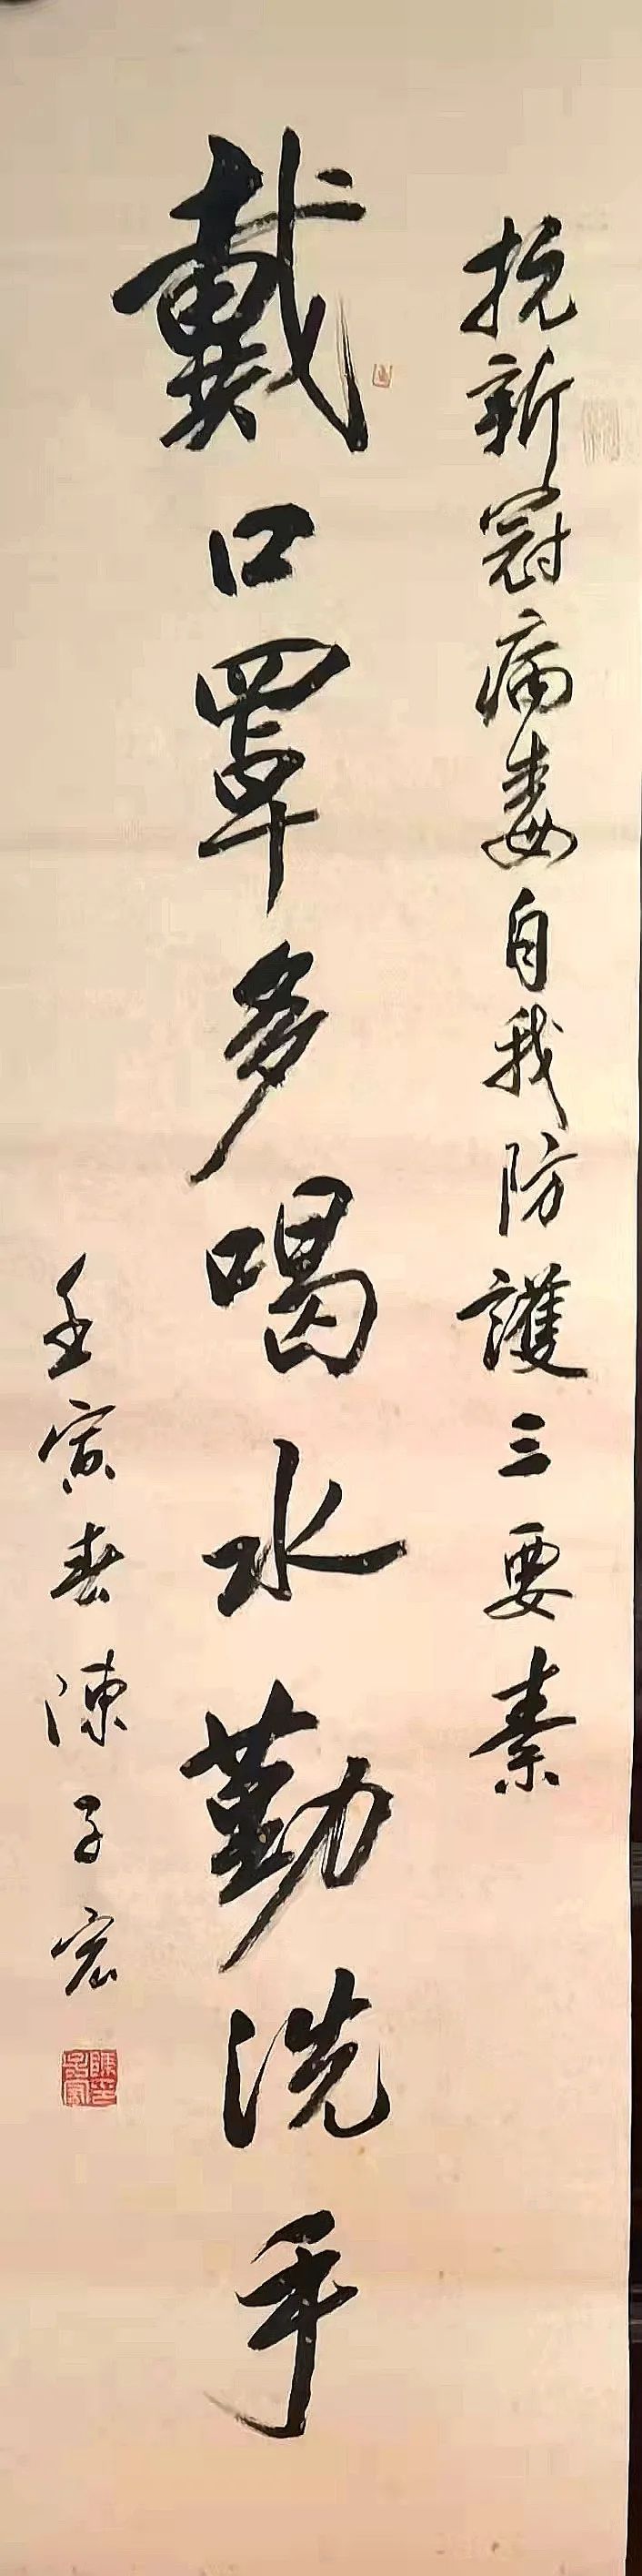 抗新冠病毒自我防護三要素
戴口罩多喝水勤洗手
壬寅春陳子宏